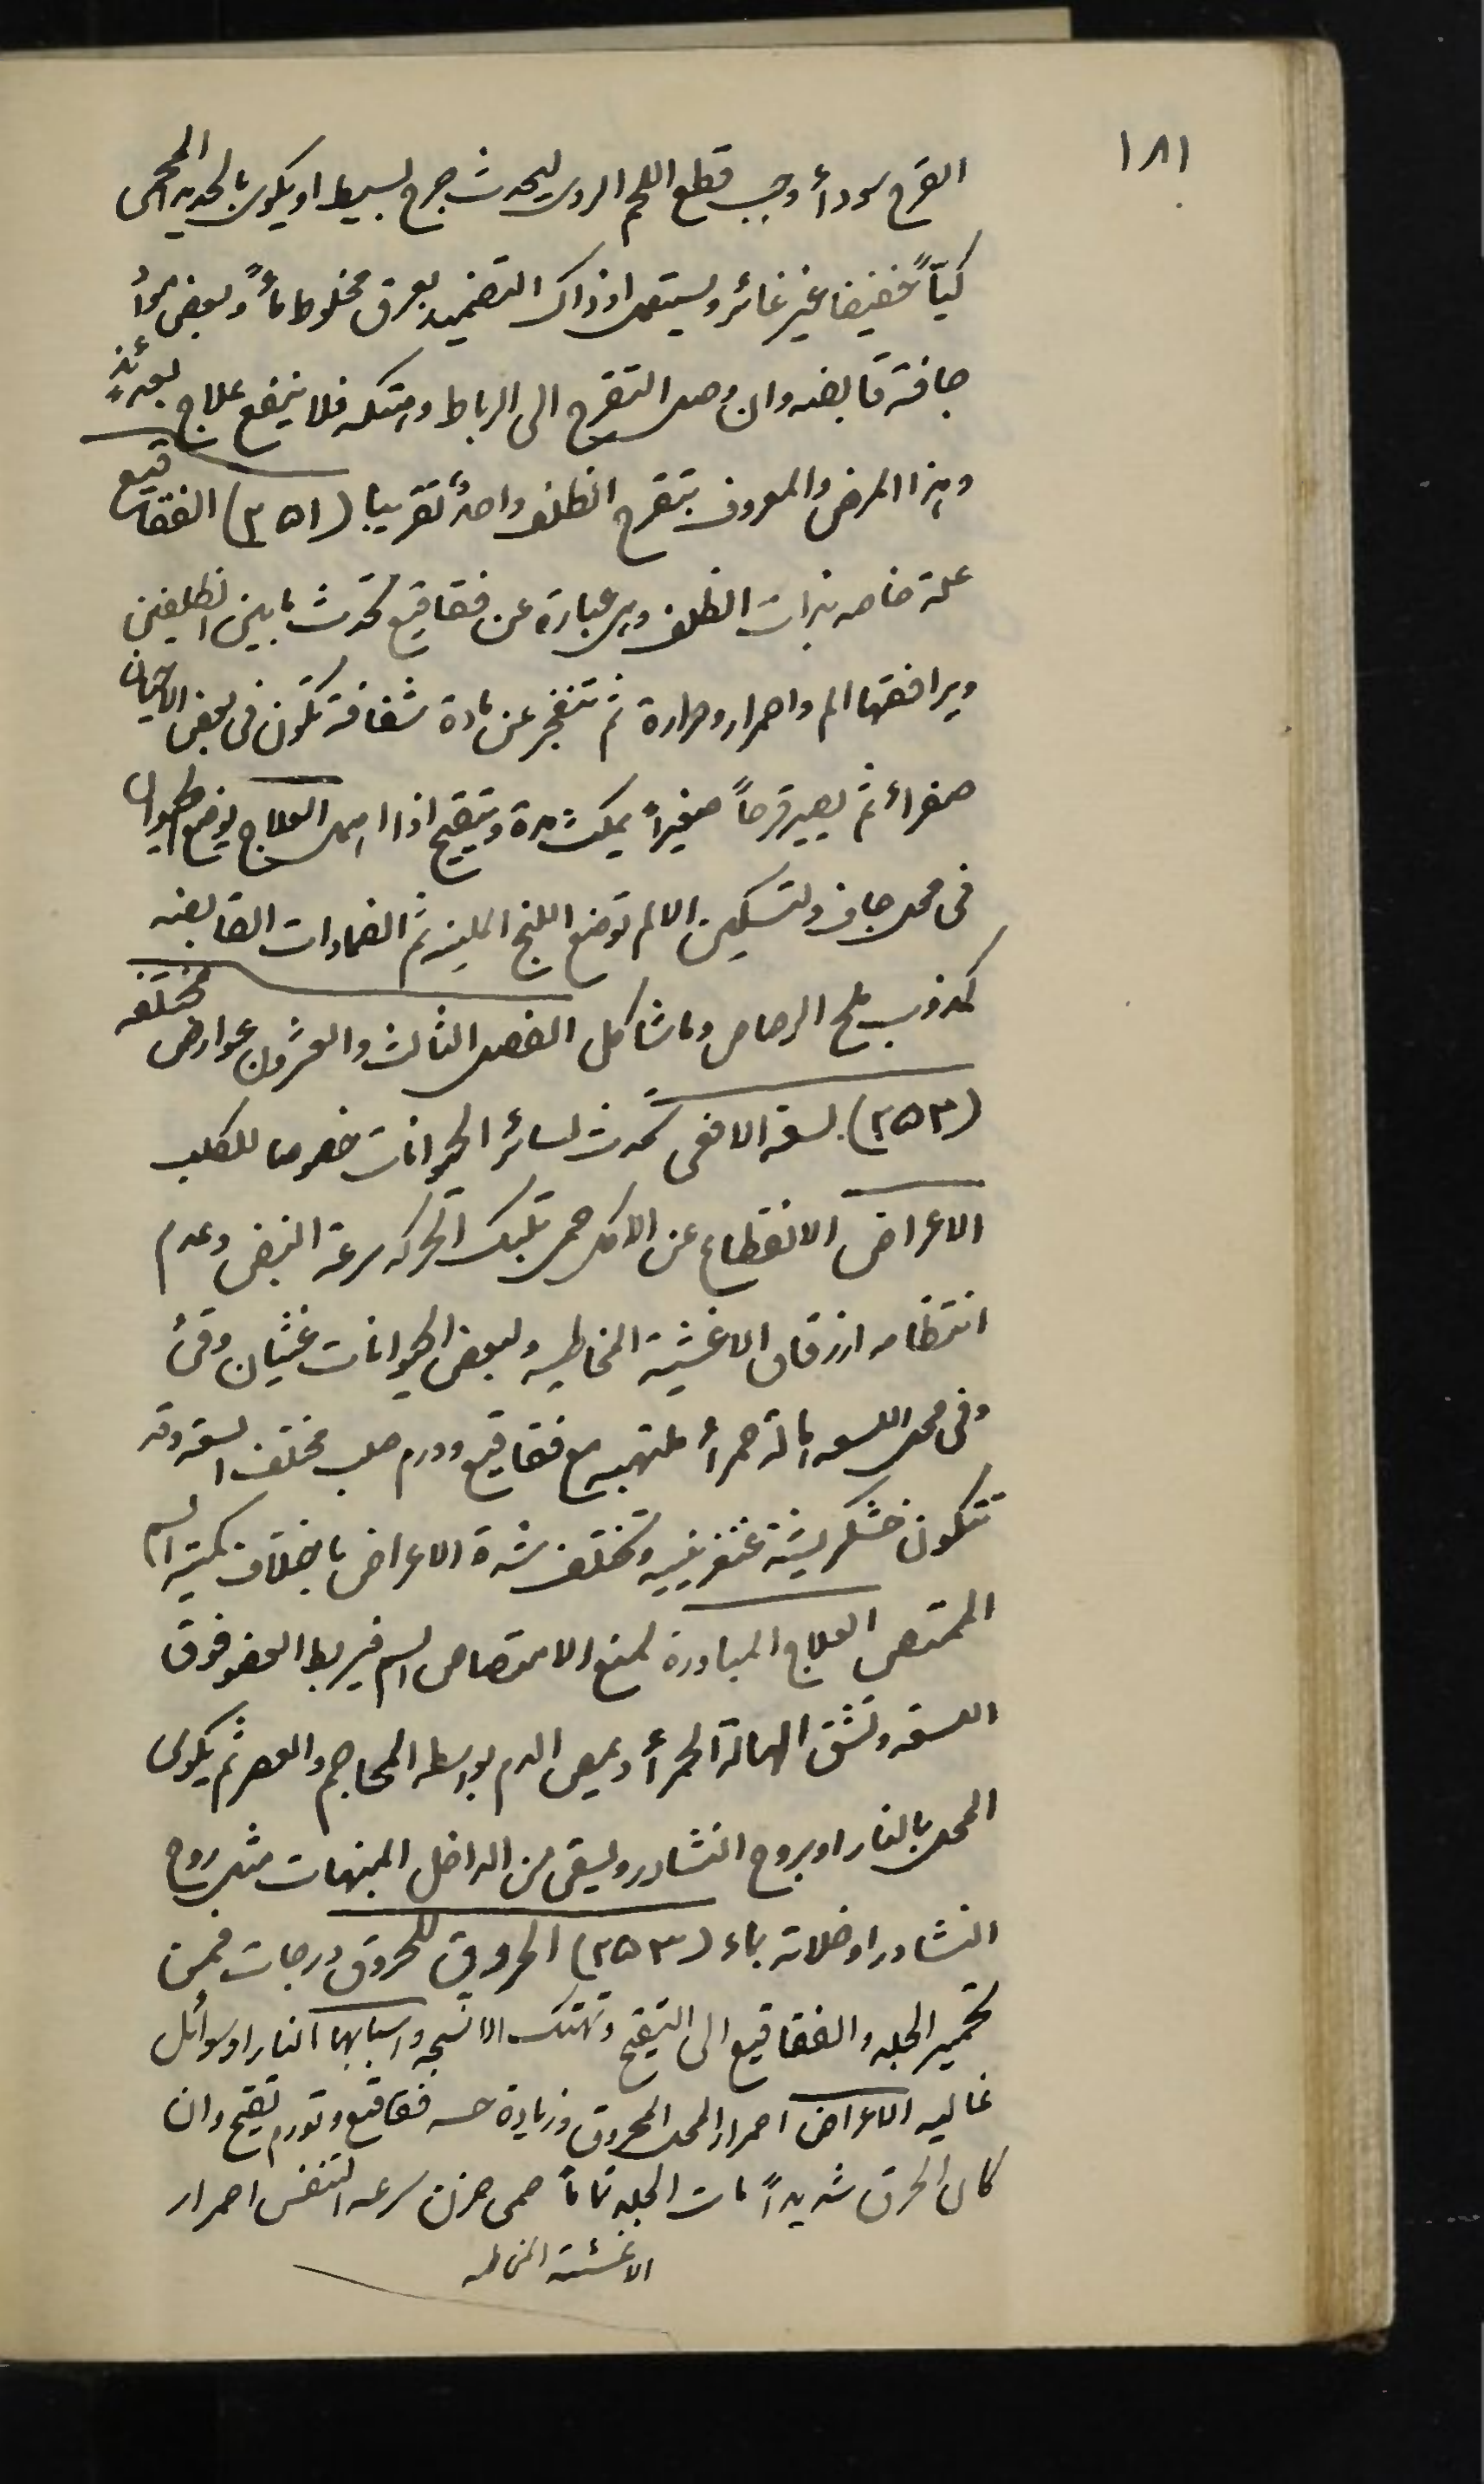 ١٨١
القرح سودأ وجب قطع اللحم الردى ليحدث جرح بسيط او يكوى بالحديد المحمى
كيّاً خفيفا غير غائر ويستعمل اذ ذاك التضميد بعرق مخلوط مأً وبعض
جافة قابضه وان وصل التقرح الى الرباط وامتكه فلا ينفع علاج بعدئذٍ
وهذا المرض والمعروف بتقرح الظلف واحدٌ تقريبا (٢٥١) الفقاقيع
علة خاصه بذات الظلف وهى عبارة عن فقاقيع تحدث بابين الظلفين
ويرافقها الم واحمرار وحرارة ثم تنفجر عن مادة شفافة تكون فى بعض الاحيان
صفراء ثم يصير قرحاً صغيراً يمكث مدة ويتقيح اذا اهمل العلاج يوضع الحيوان
فى محل جاف ولتسكين الالم توضع اللبخ الملينه ثم الضمادات القابضه
كمذوب ملح الرصاص وما شاكل الفصل الثالث والعشرون عوارض مختلفه
(٢٥٢) لسعة الافعى تحدث لسائر الحيوانات خصوصا للكلب
الاعراض الانقطاع عن الاكل حمى تلبك الحركه سرعة النبض وعدم
انتظامه ازرقاق الاغشية المخاطيه ولبعض الحيوانات غثيان وقئ
وفى محل اللسعه هالة حمرأ ملتهبه مع فقاقيع وورم صلب مختلف السعة وقد
تتكون خشكريشة غنغرينيه وتختلف شدة الاعراض باختلاف كمية السم
الممتص العلاج المبادرة لمنع الامتصاص السم فيربط العضو فوق
اللسعه وتشق الهالة الحمرأ ويمص الدم بواسطه المحاجم والعصر ثم يكوى
المحل بالنار او بروح النشادر ويسقى من الداخل المنبهات مثل روح
النشادر او خلاته بماء (٢٥٣) الحروق للحروق درجات فمن
تحمير الجلد والفقاقيع الى التقيح وتهتك الانسجه واسبابها النار او سوائل
غاليه الاعراض احمرار المحل المحروق وزيادة حسه فقاقيع وتورم تقيح وان
كان الحرق شديداً مات الجلد تماماً حمى حزن سرعه التنفس احمرار
الاغشية المخاطيه